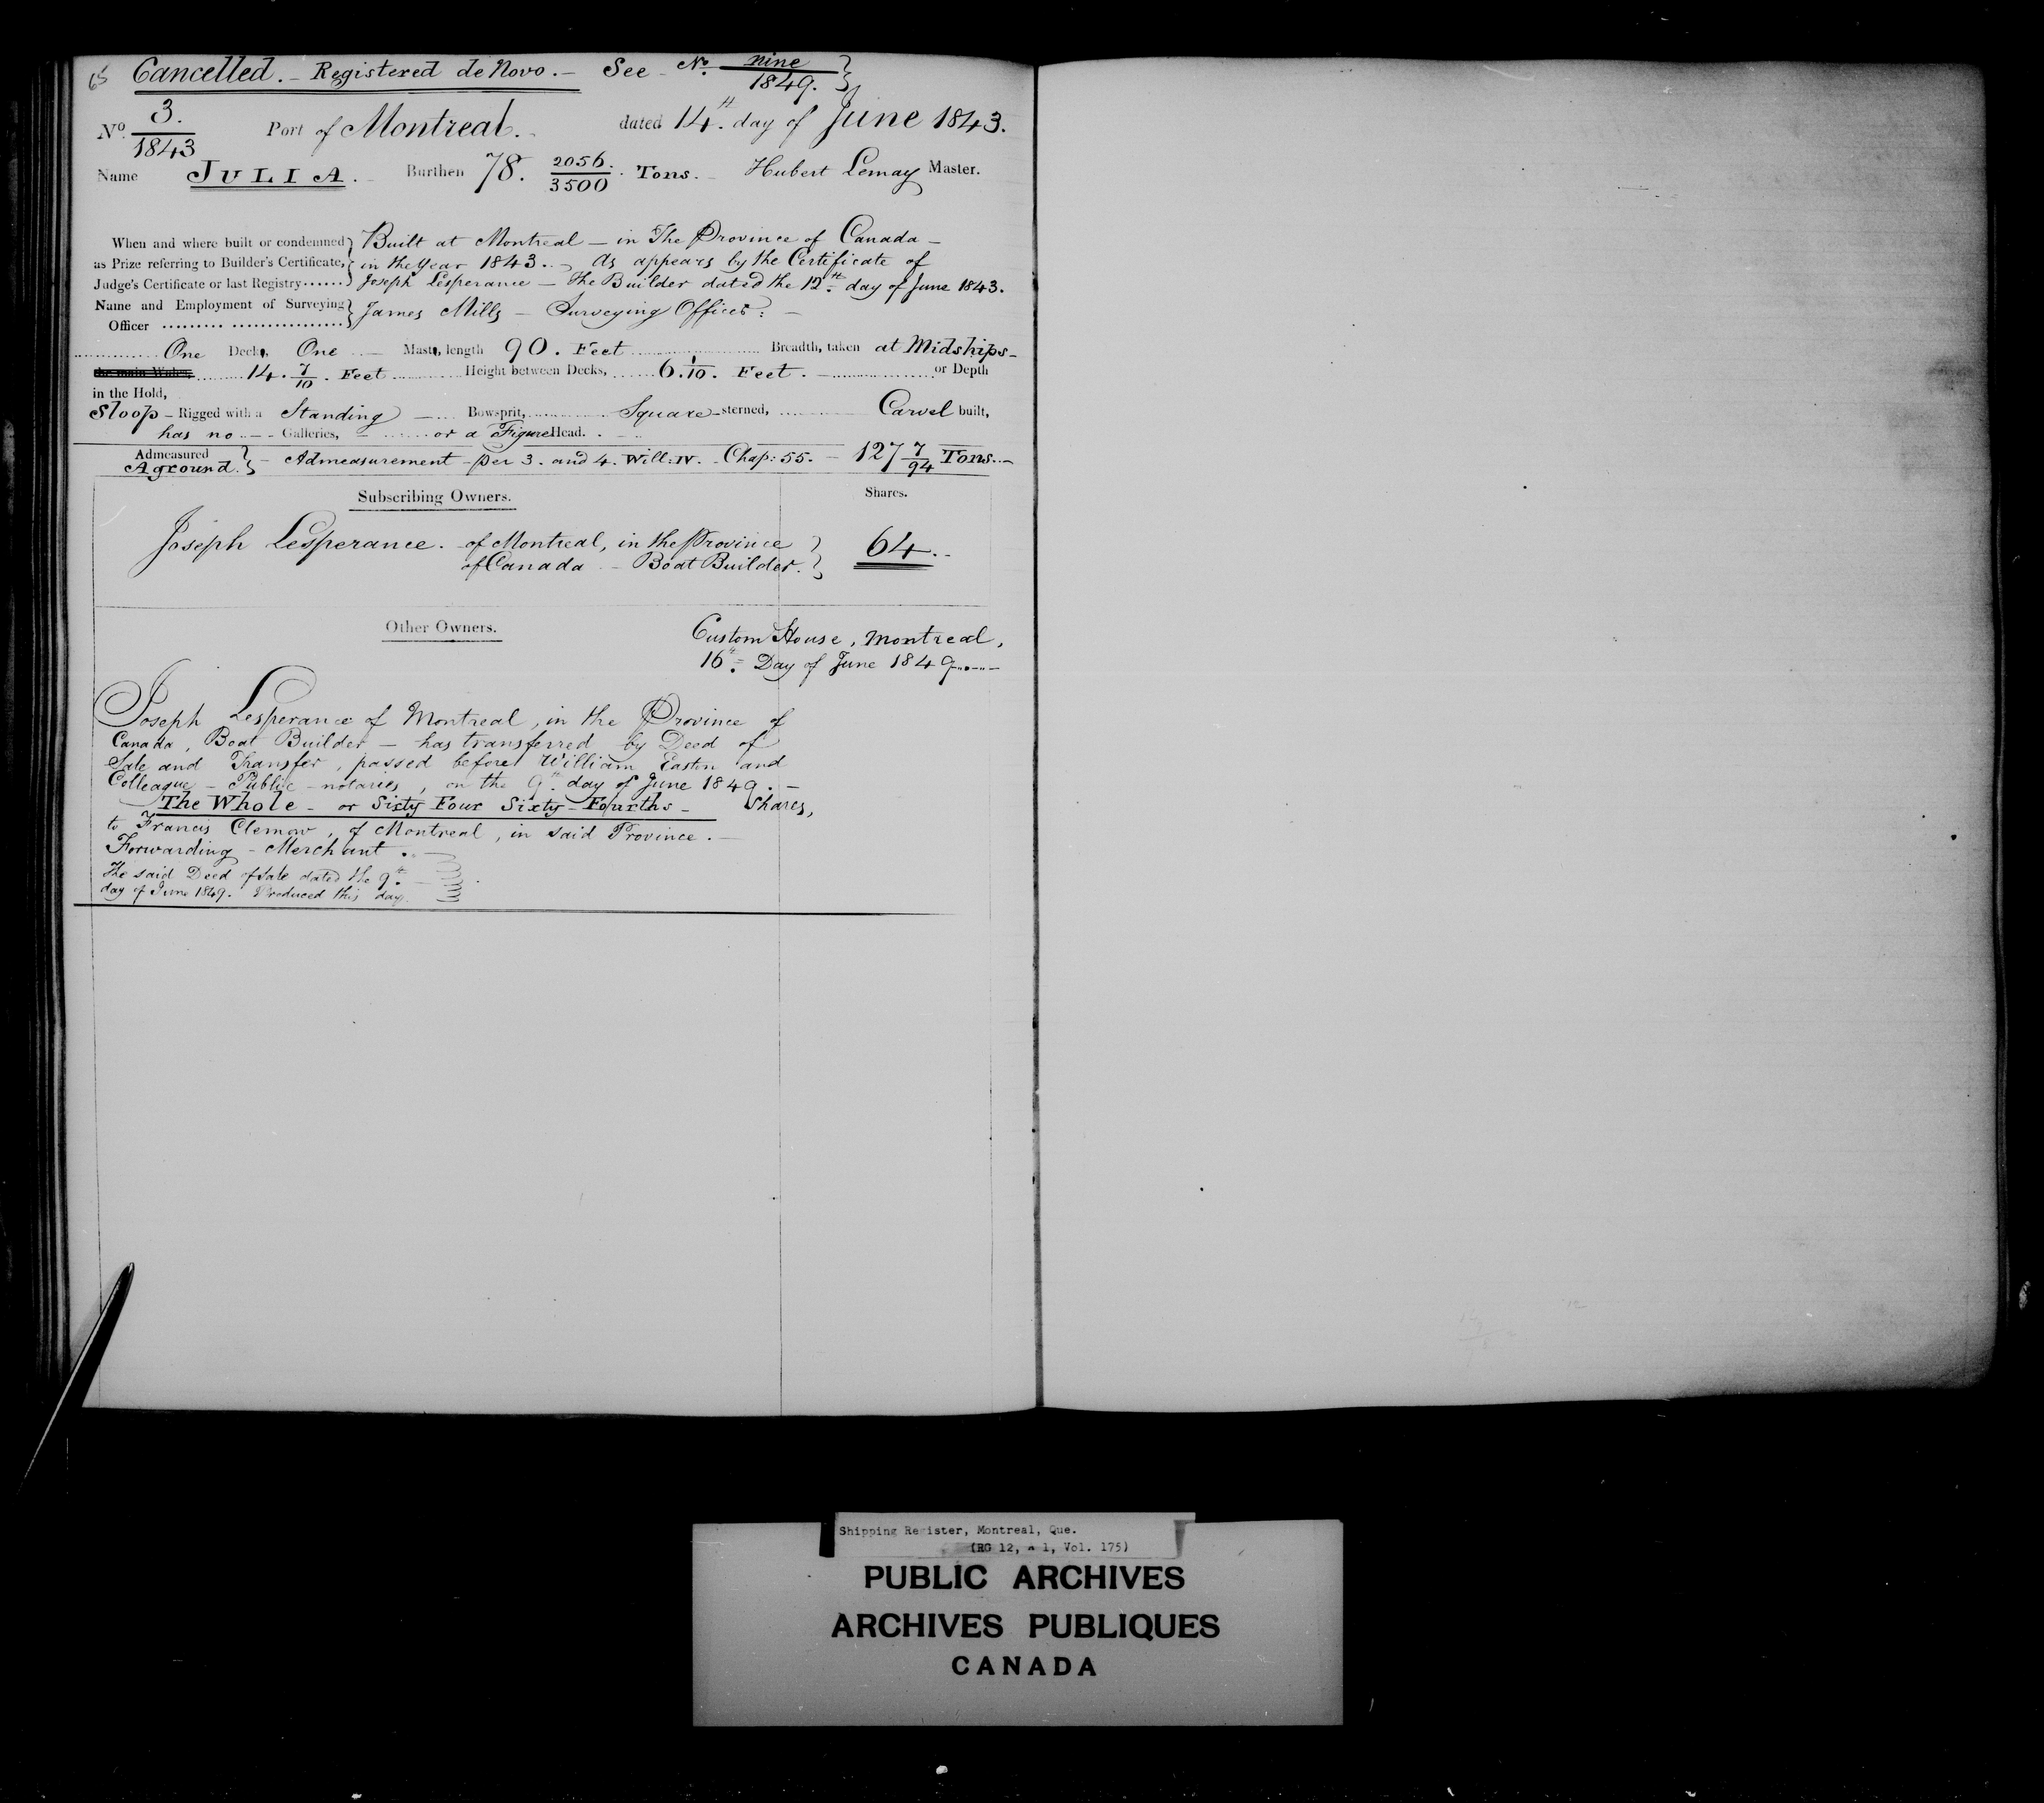 65 Cancelled. - Registered de Novo. - See - No. nine/1849. }
No. 3./1843 Port of Montreal. dated 14th. day of June 1843.
Name JULIA. - Burthen 78. 2056/3500. Tons. - Hubert Lemay Master.
When and where built or condemned } Built at Montreal - in The Province of Canada -
as Prize referring to Builder's Certificate, } in the Year 1843. - As appears by the Certificate of
Judge's Certificate or last Registry ...... } Joseph Lesperance - The Builder dated the 12th. day of June 1843.
Name and Employment of Surveying } James Mills - Surveying Officer: -
Officer ......... ................. }
One Deck, One - Mast, length 90. Feet Breadth, taken at Midships -
the main Wales, 14. 7/10. Feet Height between Decks, 6. 1/10. Feet. - or Depth
in the Hold,
Sloop - Rigged with a Standing - Bowsprit, Square - sterned, Carvel built,
has no - Galleries, - or a Figure Head. -
Admeasured } - Admeasurement - per 3. and 4. Will: IV. - Chap: 55. - 127 7/94 Tons. -
Aground. }
Subscribing Owners. Shares.
Joseph Lesperance. - of Montreal, in the Province } 64. -
of Canada - Boat Builder. }
Other Owners. Custom House, Montreal,
16th. Day of June 1849
Joseph Lesperance of Montreal, in the Province of
Canada, Boat Builder - has transferred by Deed of
Sale and Transfer, passed before William Easton and
Colleague - Public - notaries, on the 9th. day of June 1849. -
The Whole - or Sixty Four Sixty - Fourths - Shares,
to Francis Clemow, of Montreal, in said Province. -
Forwarding - Merchant. -
The said Deed of Sale dated the 9th. -
day of June 1849. Produced this day.
Shipping Register, Montreal, Que.
(RG 12, A 1, Vol. 175)
PUBLIC ARCHIVES
ARCHIVES PUBLIQUES
CANADA